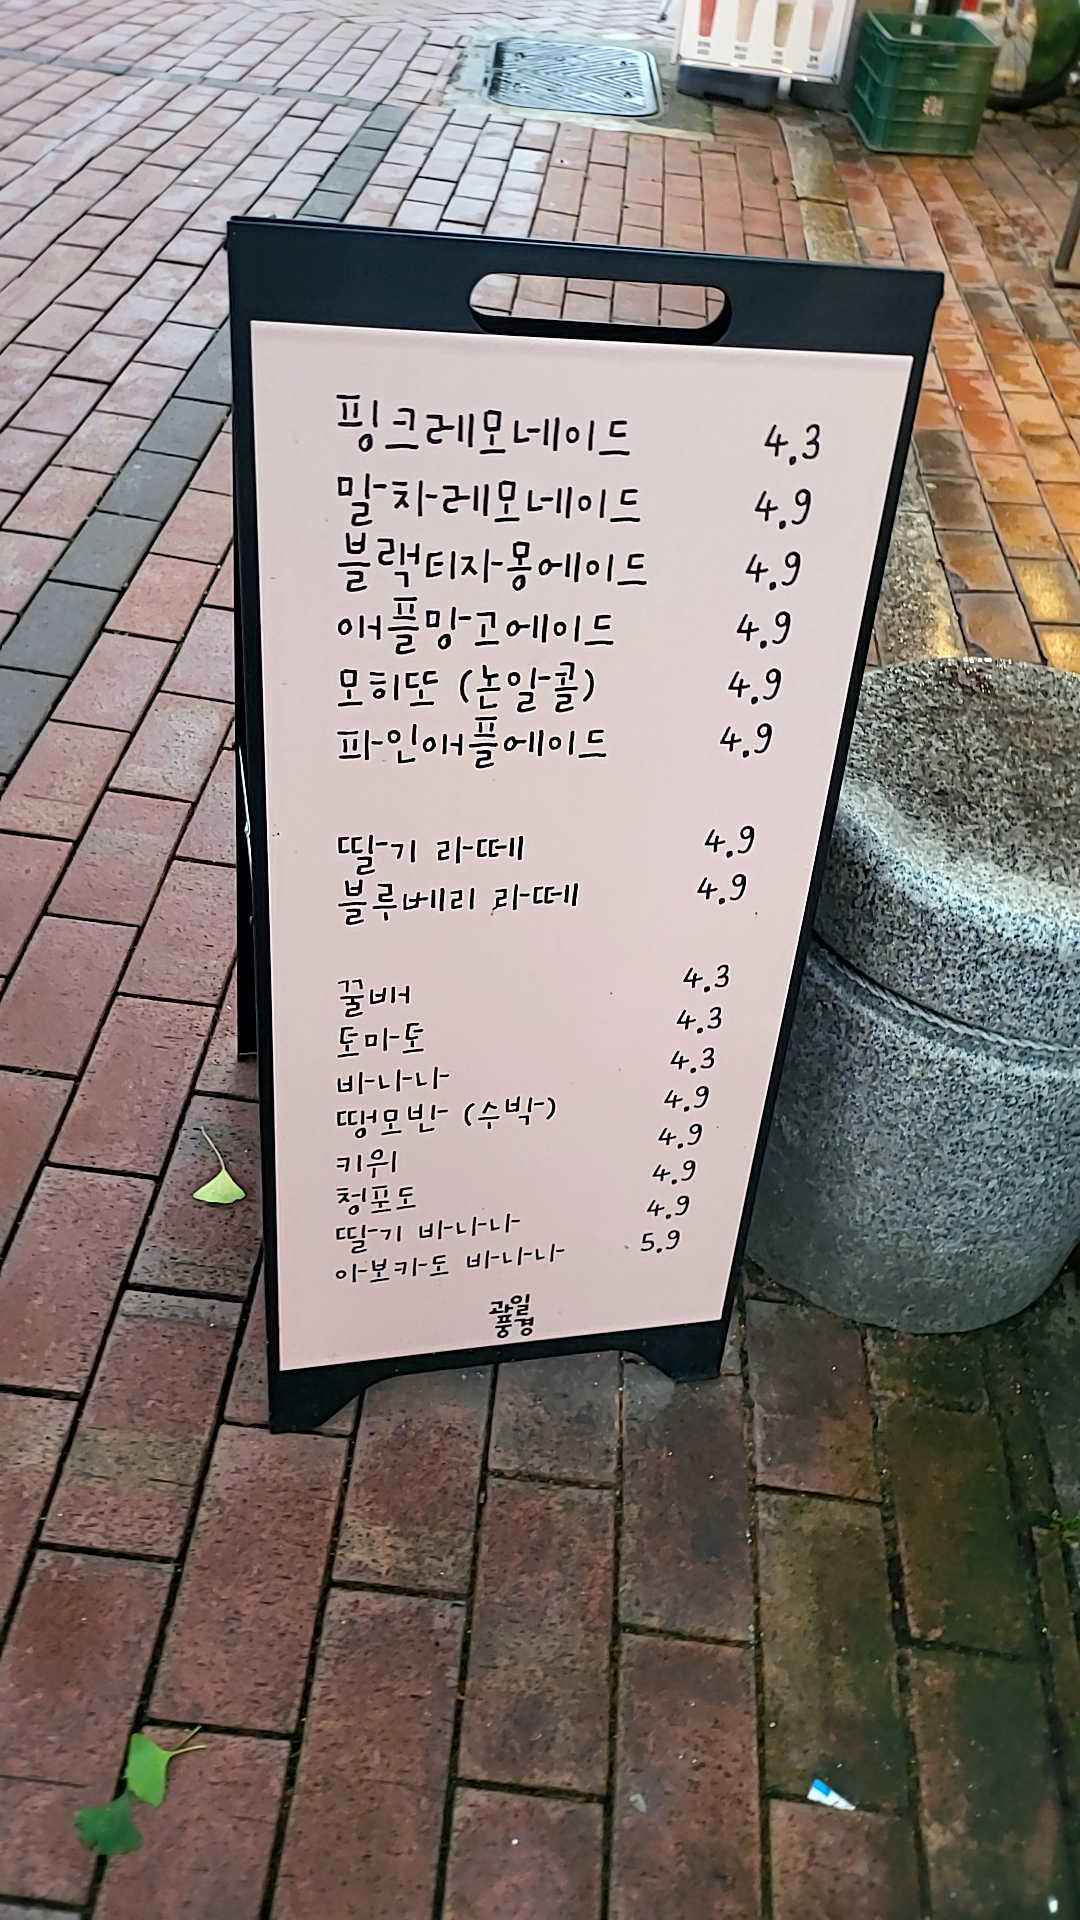 핑크레모네이드 4.3
말차레모네이드 4.9
블랙티자몽에이드 4.9
애플망고에이드 4.9
모히또 (논알콜) 4.9
파인애플에이드 4.9
딸기 라떼 4.9
블루베리 라떼 4.9
꿀배 4.3
토마토 4.3
바나나 4.3
땡모반 (수박) 4.9
키위 4.9
청포도 4.9
딸기 바나나 4.9
아보카도 바나나 5.9
과일
풍경